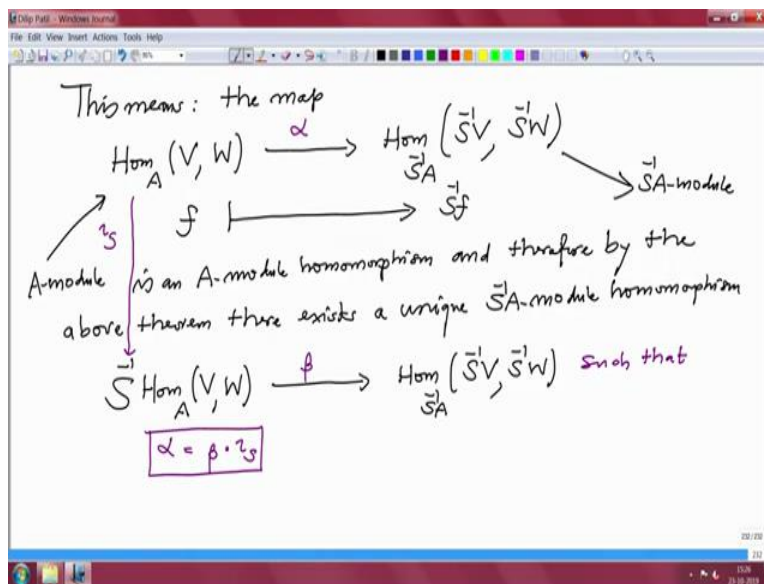 Dilip Patil - Windows Journal
File Edit View Insert Actions Tools Help
This means: the map
Hom_A (V, W) α → Hom_{S⁻¹A} (S⁻¹V, S⁻¹W)
S⁻¹A-module
f ↦ S⁻¹f
ι_S
A-module is an A-module homomorphism and therefore by the
above theorem there exists a unique S⁻¹A-module homomorphism
S⁻¹ Hom_A (V, W) β → Hom_{S⁻¹A} (S⁻¹V, S⁻¹W) such that
α = β · ι_S
232/232
232
15:26
23-10-2019